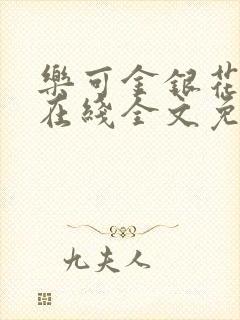 樂可金銀花
在綫全文免
九夫人